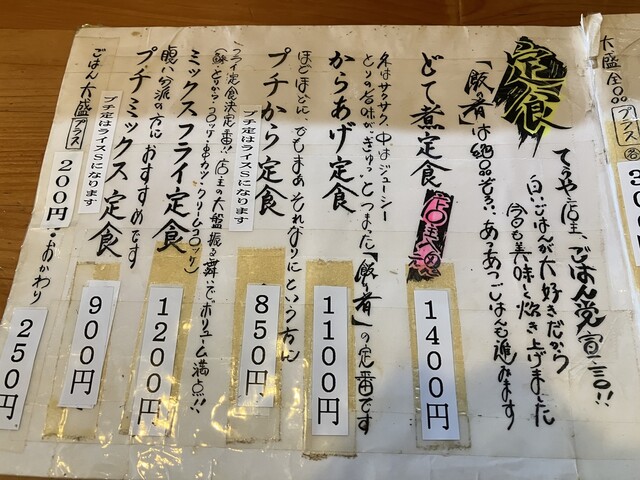 大盛全品
プラス
定食
てらや店主、ごはん党宣言!!
白いごはんが大好きだから
今日も美味しく炊き上げました
「飯の肴」は絶品ぞろい、あつあつごはんも進みます
どて煮定食
1400円
外はサクサク、中はジューシー
とりの旨味が“ぎゅっ”とつまった「飯の肴」の定番です
からあげ定食
1100円
ほどほどに、でもまあそれなりにという方に
プチから定食
プチ定はライスSになります
850円
フライ定食決定番!!店主の大盤振る舞いでボリューム満点!!
ミックスフライ定食
1200円
腹八分派の方におすすめです
プチミックス定食
プチ定はライスSになります
900円
ごはん大盛プラス
200円
・おかわり
250円